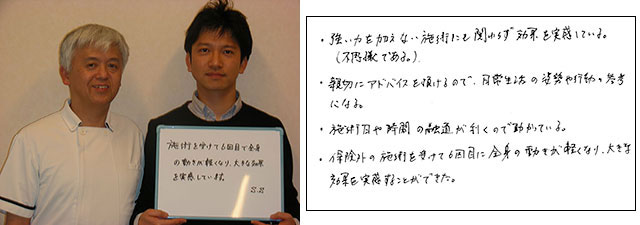 施術を受けて6回目で全身
の動きが軽くなり、大きな効果
を実感しています。
S.S
・強い力を加えない施術にも関わらず効果を実感している。
(不思議である。)
・親切にアドバイスを頂けるので、日常生活の姿勢や行動の参考
になる。
・施術日や時間の融通が利くので助かっている。
・保険外の施術を受けて6回目に全身の動きが軽くなり、大きな
効果を実感することができた。